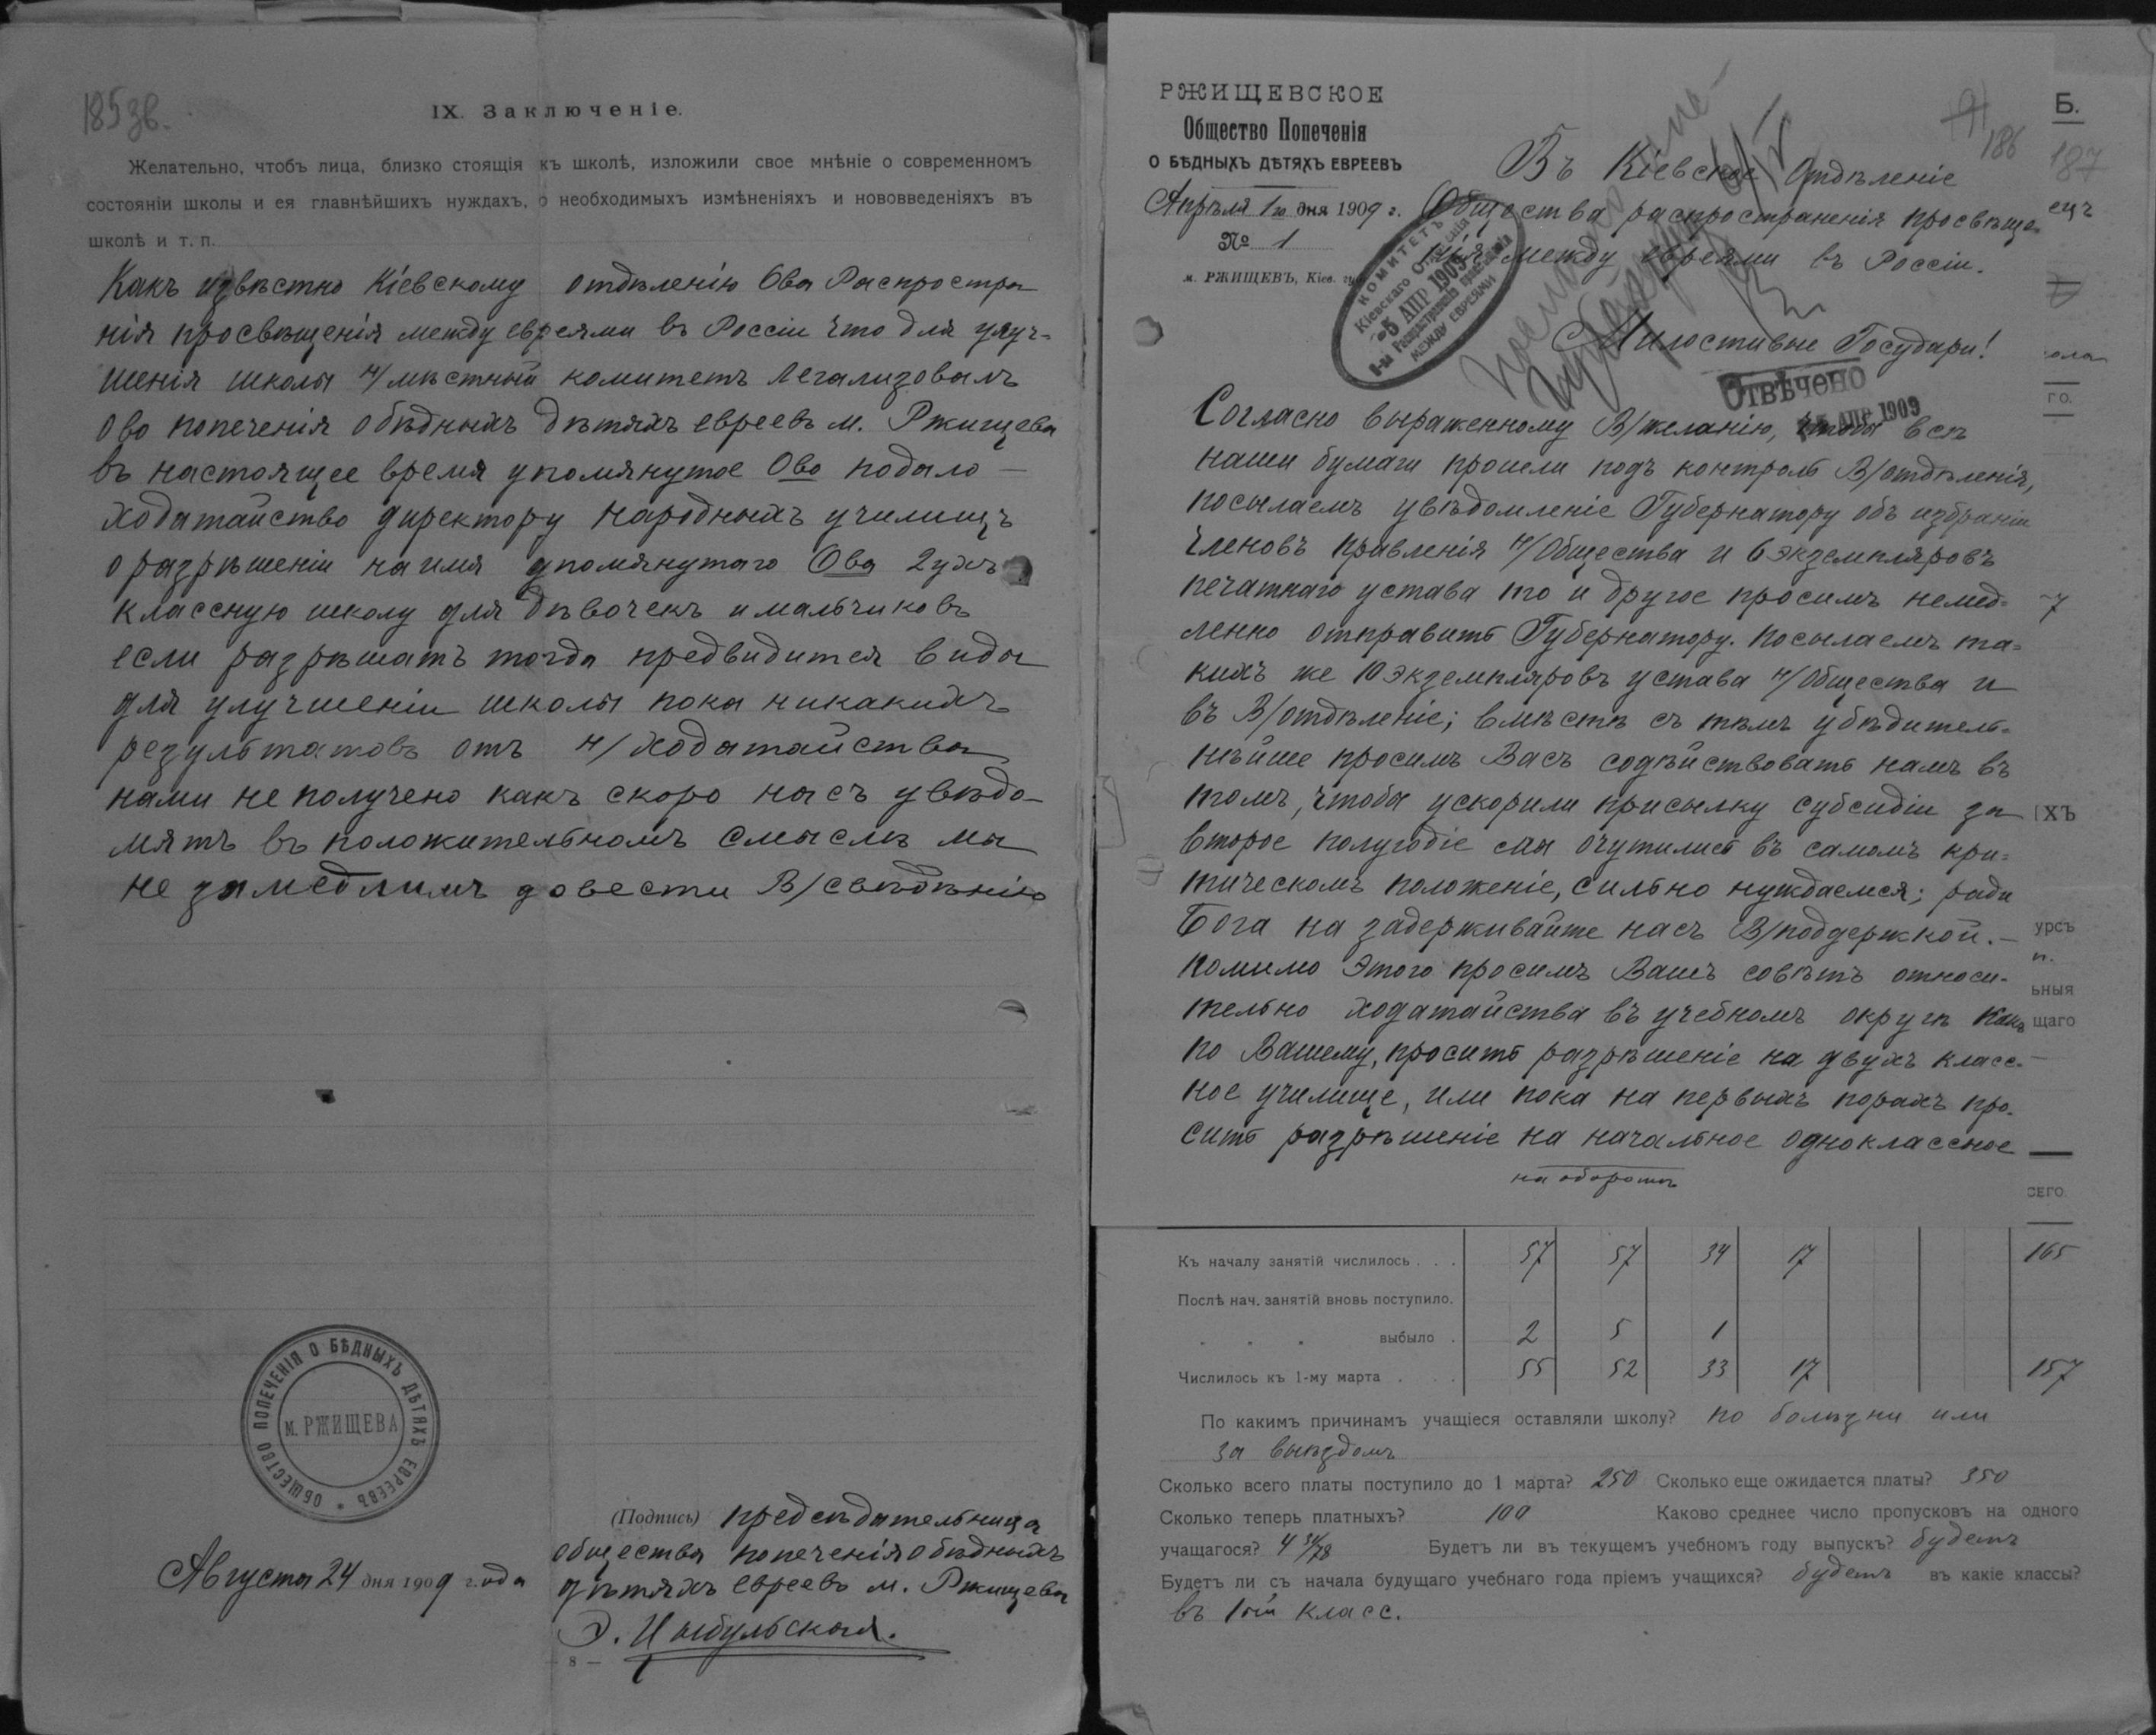 185 зв.
IX. Заключеніе.
Желательно, чтобъ лица, близко стоящія къ школѣ, изложили свое мнѣніе о современномъ
состояніи школы и ея главнѣйшихъ нуждахъ, о необходимыхъ измѣненіяхъ и нововведеніяхъ въ
школѣ и т. п.
Какъ извѣстно Кіевскому отдѣленію Ова Распростра
нія просвѣщенія между евреями въ Россіи что для улуч-
шенія школы н/мѣстный комитетъ легализовалъ
Ово попеченія о бѣдныхъ дѣтяхъ евреевъ м. Ржищева
въ настоящее время упомянутое Ово подало —
ходатайство директору народныхъ училищъ
о разрѣшеніи на имя упомянутаго Ова 2ухъ
классную школу для дѣвочекъ и мальчиковъ
если разрѣшатъ тогда предвидится виды
для улучшеніи школы пока никакихъ
результатовъ отъ н/ходатайства
нами не получено какъ скоро насъ увѣдо-
мятъ въ положительномъ смыслѣ мы
не замедлимъ довести В/свѣдѣнію
ОБЩЕСТВО ПОПЕЧЕНІЯ О БѢДНЫХЪ ДѢТЯХЪ ЕВРЕЕВЪ *
М. РЖИЩЕВА
Августа 24 дня 1909 года
(Подпись) предсѣдательница
общества попеченія о бѣдныхъ
дѣтяхъ евреевъ м. Ржищева
Э. Цыбульская.
— 8 —
РЖИЩЕВСКОЕ
Общество Попеченія
О БѢДНЫХЪ ДѢТЯХЪ ЕВРЕЕВЪ
Апрѣля 1го дня 1909 г.
№ 1
м. РЖИЩЕВЪ, Кіев. губ.
186
Въ Кіевское Отдѣленіе
Общества распространенія просвѣще-
нія между евреями въ Россіи.
КОМИТЕТЪ
Кіевскаго Отдѣленія
-5 АПР 1909
О-ва Распространенія просвѣщенія
МЕЖДУ ЕВРЕЯМИ
Милостивые Государи!
ОТВѢЧЕНО
АПР 1909
Согласно выраженному В/желанію, чтобы всѣ
наши бумаги прошли подъ контроль В/отдѣленія,
посылаемъ увѣдомленіе Губернатору объ избраніи
членовъ правленія н/Общества и 6 экземпляровъ
печатнаго устава то и другое просимъ немед-
ленно отправить Губернатору. Посылаемъ та-
кихъ же 10 экземпляровъ устава н/Общества и
въ В/отдѣленіе; вмѣстѣ съ тѣмъ убѣдитель-
нѣйше просимъ Васъ содѣйствовать намъ въ
томъ, чтобы ускорили присылку субсидіи за
второе полугодіе мы очутились въ самомъ кри-
тическомъ положеніе, сильно нуждаемся; ради
Бога на задерживайте насъ В/поддержкой. —
Помимо этого просимъ Вашъ совѣтъ относи-
тельно ходатайства въ учебномъ округѣ какъ
по Вашему, просить разрѣшеніе на двухъ класс-
ное училище, или пока на первыхъ порахъ про-
сить разрѣшеніе на начальное одноклассное
на оборотѣ
Б.
187
ецъ
го.
ІХЪ
урсъ
п.
ьныя
щаго
СЕГО.
Къ началу занятій числилось . . . 57 57 34 17 165
Послѣ нач. занятій вновь поступило.
" " " выбыло . 2 5 1
Числилось къ 1-му марта . . . 55 52 33 17 157
По какимъ причинамъ учащіеся оставляли школу? по болѣзни или
за выѣздомъ
Сколько всего платы поступило до 1 марта? 250 Сколько еще ожидается платы? 350
Сколько теперь платныхъ? 100 Каково среднее число пропусковъ на одного
учащагося? Будетъ ли въ текущемъ учебномъ году выпускъ? будетъ
Будетъ ли съ начала будущаго учебнаго года пріемъ учащихся? будетъ въ какіе классы?
въ 1ый класс.